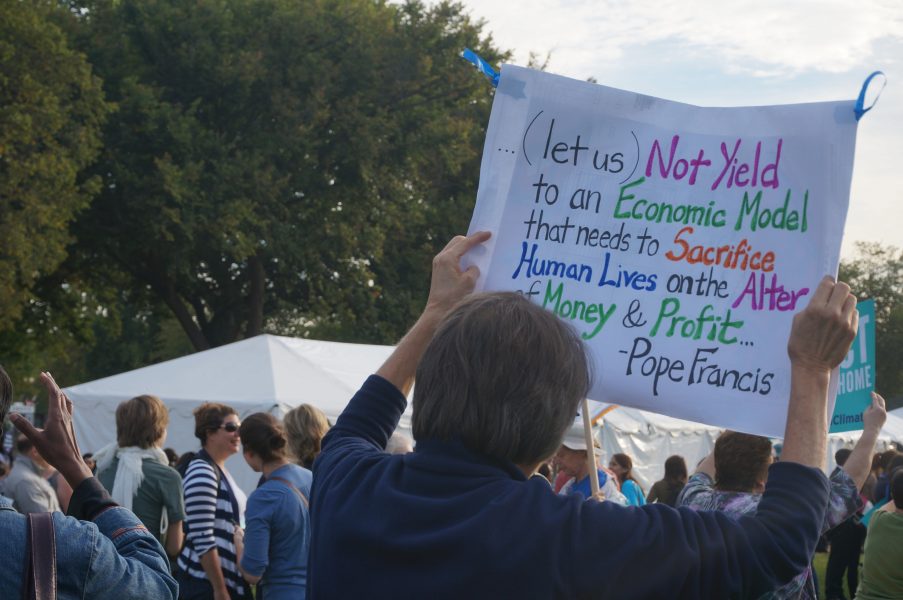 ... (let us) Not Yield
to an Economic Model
that needs to Sacrifice
Human Lives on the Alter
of Money & Profit...
-Pope Francis
ST
HOME
Climat